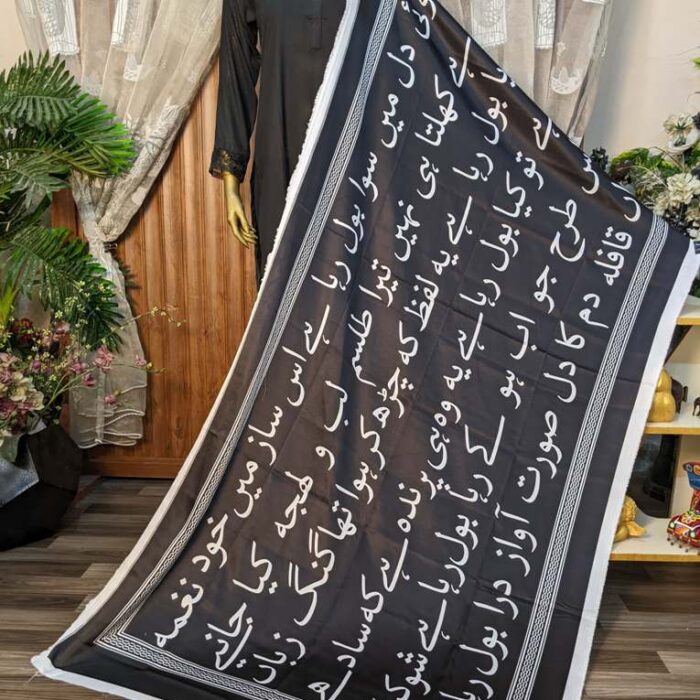 ئی دل میں سوا بول رہا ہے اس ساز میں خود نغمہ
ہے کھلتا ہی نہیں تیرا طلسم لب و لہجہ کیا جانیے
بول رہا ہے یہ لفظ کہ چڑھ کر ہوا تھا گنگ زباں
ہے تو کیا بول رہا ہے یہ وہ ہی پرندہ ہے کہ سادھے
طرح جو اب ہو کے رہا بول رہا ہے شوک
قافلہ دم کا دل صورت آواز درا بول رہا